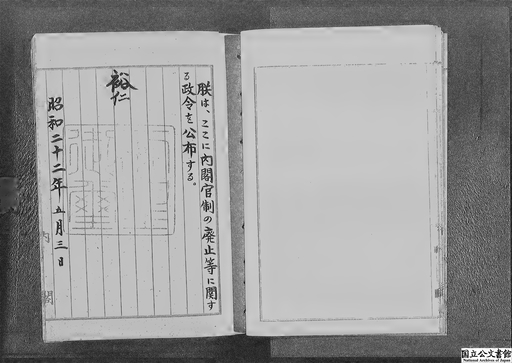 朕は、ここに内閣官制の廃止等に関す
る政令を公布する。
裕仁
昭和二十二年五月三日
内閣
国立公文書館
National Archives of Japan